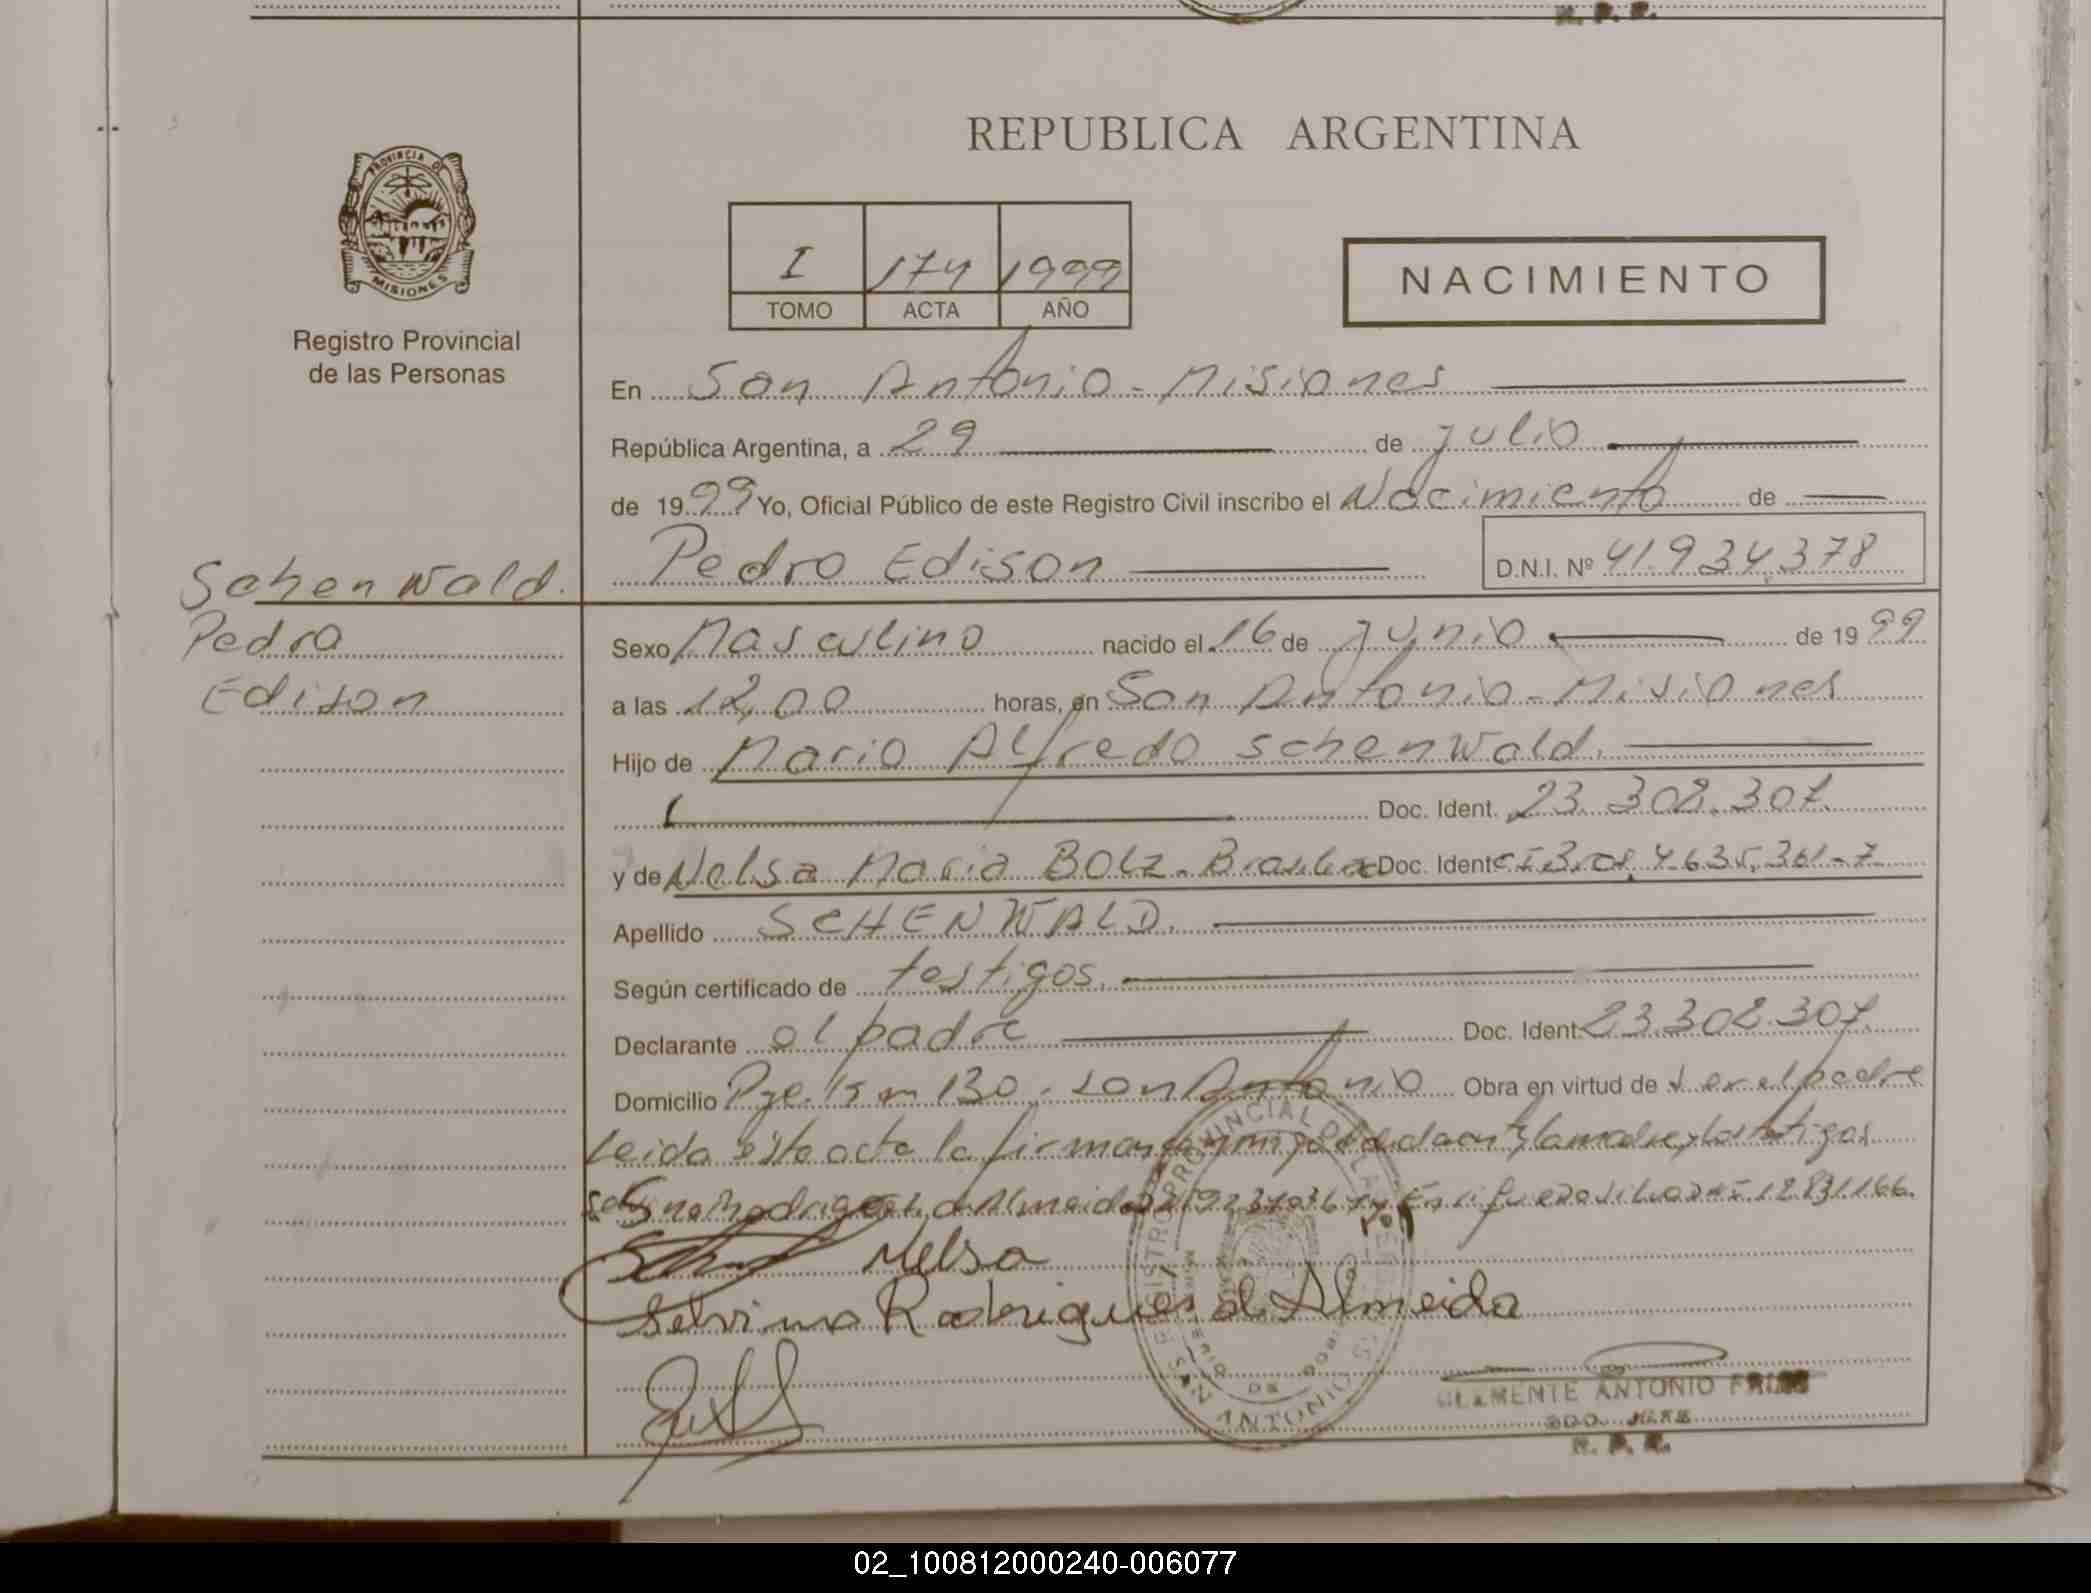 REPUBLICA ARGENTINA
PROVINCIA DE
MISIONES
Registro Provincial
de las Personas
I 174 1999
TOMO ACTA AÑO
NACIMIENTO
En San Antonio - Misiones
República Argentina, a 29 de julio
de 1999 Yo, Oficial Público de este Registro Civil inscribo el Nacimiento de
Pedro Edison D.N.I. Nº 41.934.378
Schenwald.
Pedro
Edison
Sexo Masculino nacido el 16 de junio de 1999
a las 12,00 horas, en San Antonio - Misiones
Hijo de Mario Alfredo Schenwald.
Doc. Ident. 23.302.307
y de Nelsa Maria Bolz - Doc. Ident 4.635.361-7
Apellido SCHENWALD.
Según certificado de testigos.
Declarante el padre Doc. Ident. 23.302.307
Domicilio Pje. Km 130 - San Antonio Obra en virtud de ser el padre
Leida este acta la firman la madre y los testigos
Rodrigues de Almeida 12.831.166.
Nelsa
Selvino Rodrigues de Almeida
REGISTRO PROVINCIAL DE LAS PERSONAS
SAN ANTONIO
CLEMENTE ANTONIO
R. P. P.
02_100812000240-006077